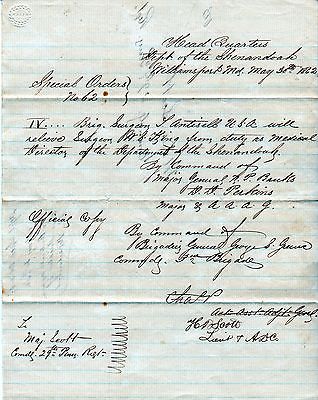 Head Quarters
Dept of the Shenandoah
Williamsport, Md. May 30th 1862
Special Orders
No 62
IV.... Brig. Surgeon T. Antisell U.S.A. will
relieve Surgeon W. S. King from duty as Medical
Director of the Department of the Shenandoah.
By Command of
Major General N. P. Banks
D. D. Perkins
Major & A. A. A. G.
Official Copy
By Command of
Brigadier General George S. Greene
Commdg Brigade
Act. Asst. Adjt. Genl.
H. B. Scott
Lieut & ADC
To
Maj Scott
Comdg 29th Penn. Regt